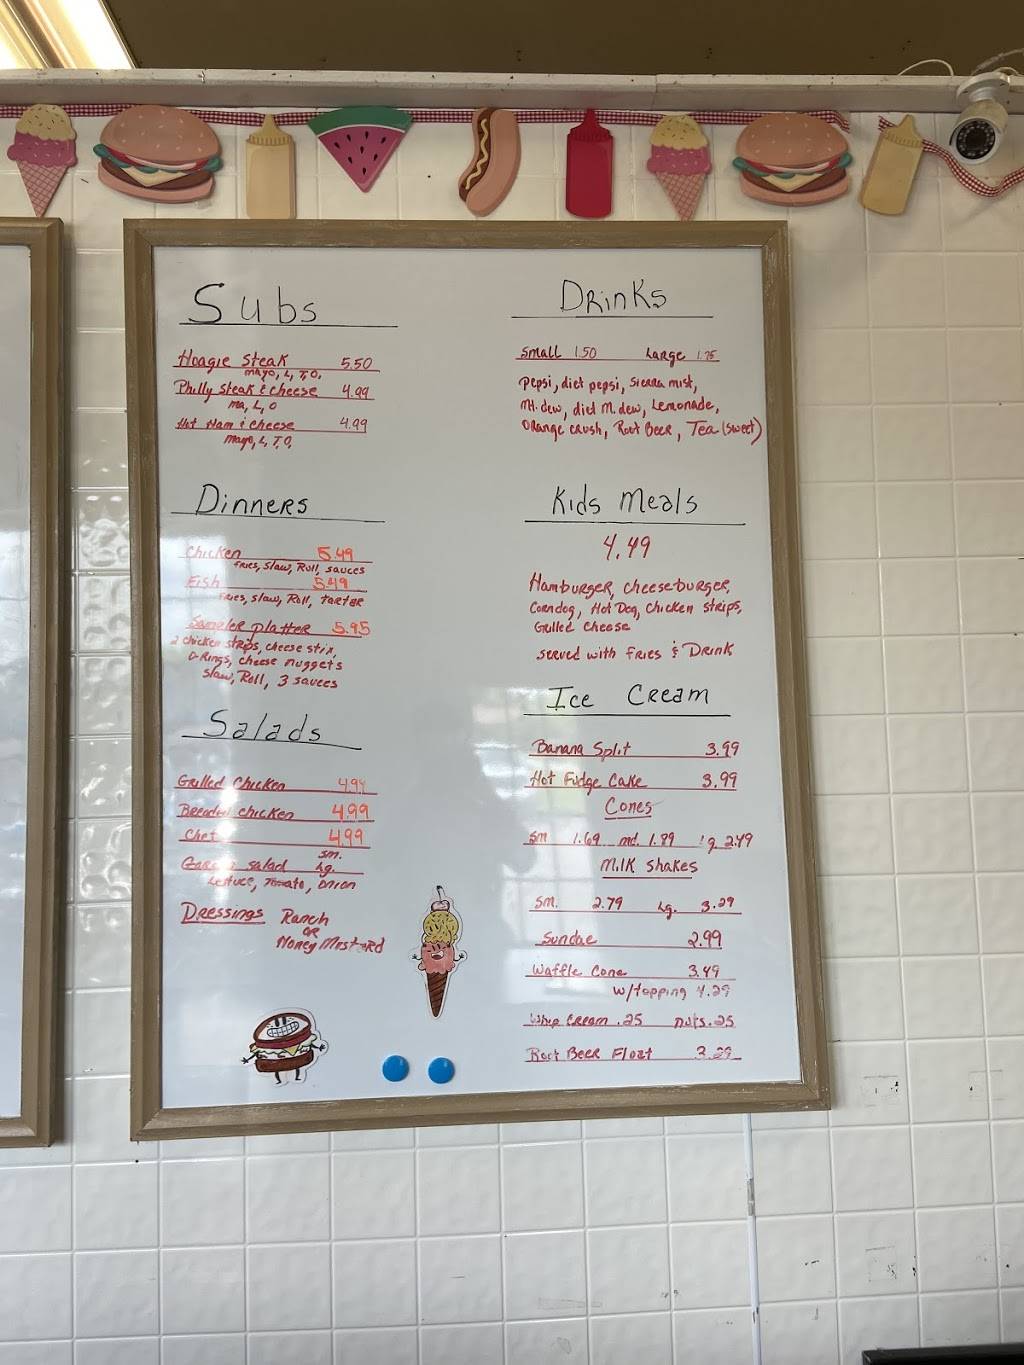 Subs
Hoagie Steak 5.50
mayo, L, T, O,
Philly Steak & cheese 4.99
ma, L, O
Hot Ham & cheese 4.99
mayo, L, T, O,
Dinners
Chicken 5.49
fries, slaw, Roll, sauces
Fish 5.49
fries, slaw, Roll, tarter
Sampler platter 5.95
2 chicken strips, cheese stix,
O-Rings, cheese nuggets
slaw, Roll, 3 sauces
Salads
Grilled Chicken 4.99
Breaded chicken 4.99
Chef 4.99
sm.
salad Lg.
Lettuce, Tomato, onion
Dressings Ranch
OR
Honey Mustard
Drinks
Small 1.50 Large 1.75
Pepsi, diet pepsi, sierra mist,
Mt. dew, diet M. dew, Lemonade,
Orange crush, Root Beer, Tea (sweet)
Kids Meals
4.49
Hamburger, cheeseburger,
Corndog, Hot Dog, chicken strips,
Grilled cheese
served with fries & Drink
Ice Cream
Banana Split 3.99
Hot Fudge Cake 3.99
Cones
Sm 1.69 md. 1.89 lg 2.49
Milk Shakes
Sm. 2.79 Lg. 3.29
Sundae 2.99
Waffle Cone 3.49
w/topping 4.29
Whip Cream .25 nuts .25
Root Beer Float 3.29